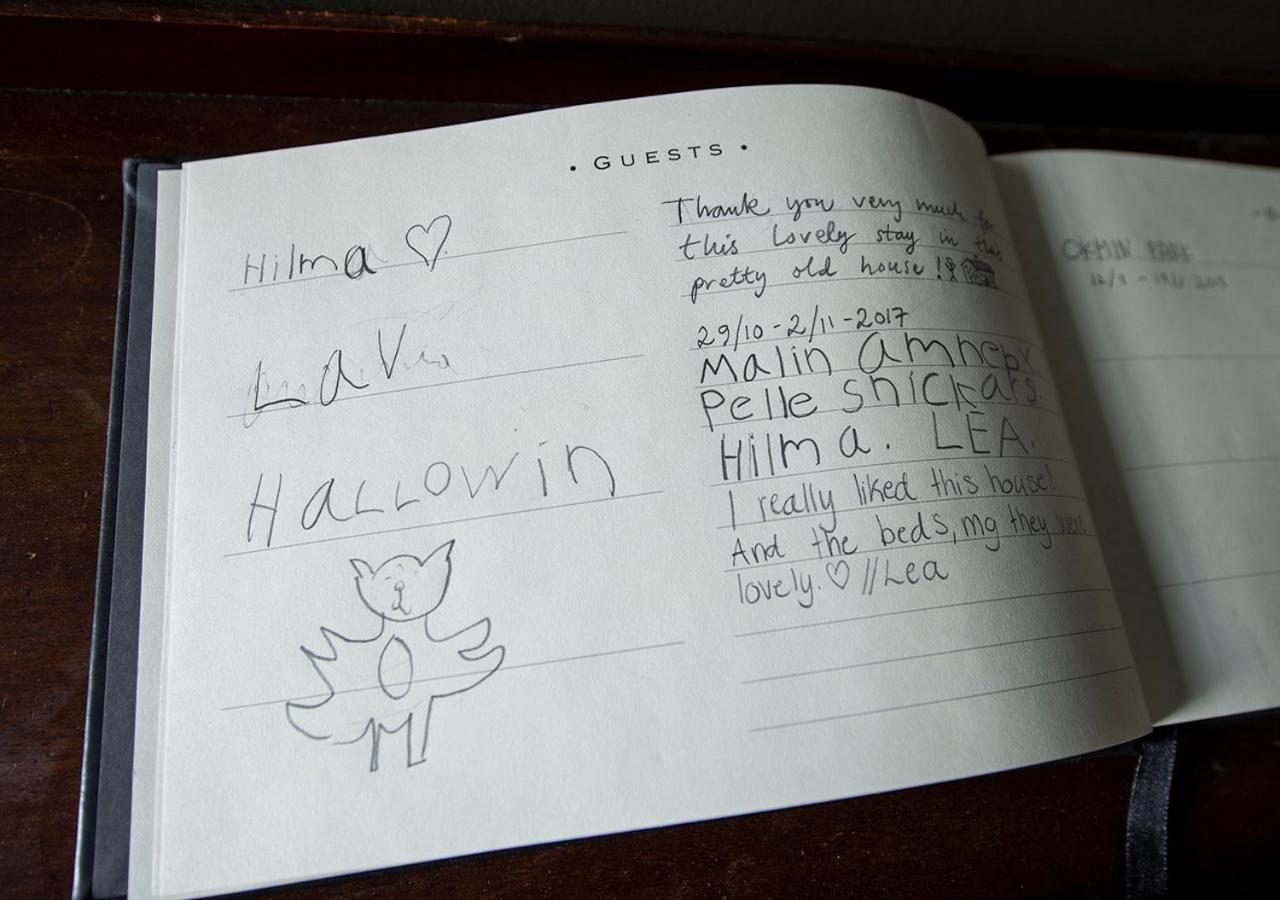 • GUESTS •
Hilma ♡
Lav
Hallowin
Thank you very much for
this lovely stay in this
pretty old house!
29/10 - 2/11 - 2017
Malin
Pelle snickars.
Hilma. LEA.
I really liked this house!
And the beds, mg they were
lovely. ♡ //Lea
OKMIN PARK